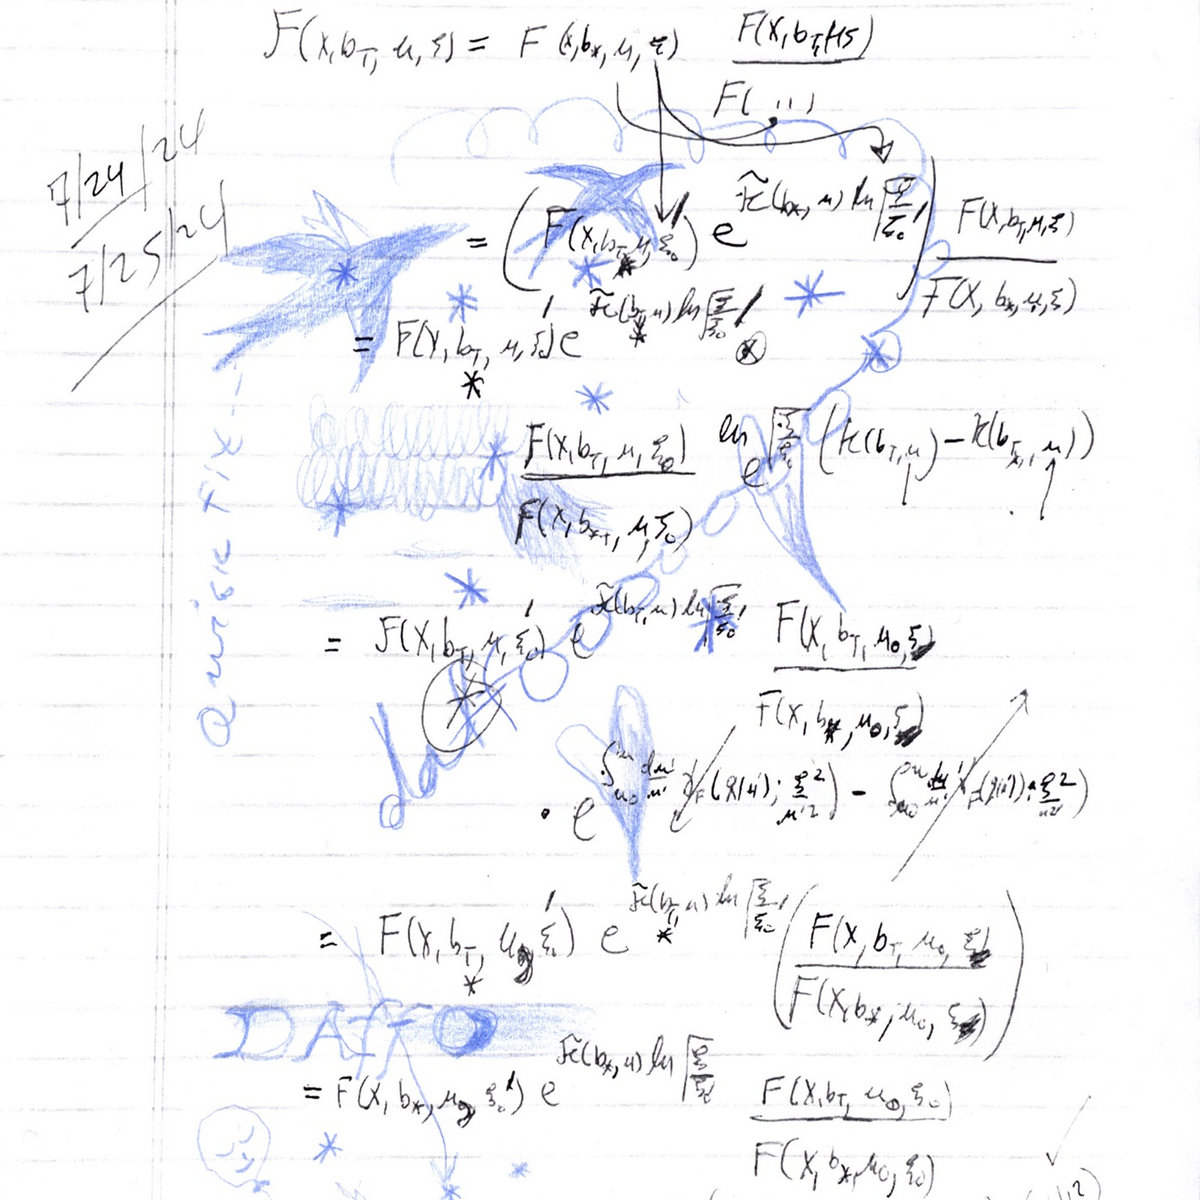 F(x, b_T, μ, ξ) = F(x, b_*, μ, ξ) F(x, b_T, μ, ξ)
F( , , )
7/24/24
7/25/24
= (F(x, b_T*, μ, ξ_0') e^{K̃(b_*, μ) ln √(ξ/ξ_0')}) F(x, b_T, μ, ξ) / F(x, b_*, μ, ξ)
= F(x, b_T*, μ, ξ_0') e^{K̃(b_T*, μ) ln √(ξ/ξ_0')} ⊛
F(x, b_T, μ, ξ_0) / F(x, b_*T, μ, ξ_0) e^{ln √(ξ/ξ_0) (K(b_T, μ) - K(b_T*, μ))}
Quick Fix--
= F(x, b_T*, μ, ξ_0') e^{K̃(b_T, μ) ln √(ξ/ξ_0')} F(x, b_T, μ_0, ξ) / F(x, b_*, μ_0, ξ)
dad
· e^{∫_{μ_0}^{μ} dμ'/μ' γ_F(g(μ'); ξ²/μ'²) - ∫_{μ_0}^{μ} dμ'/μ' γ_F(g(μ'); ξ²/μ'²)}
= F(x, b_T*, μ_0, ξ_0') e^{K̃(b_T*, μ) ln √(ξ/ξ_0')} (F(x, b_T, μ_0, ξ) / F(x, b_*, μ_0, ξ))
= F(x, b_*, μ_0, ξ_0') e^{K̃(b_*, μ) ln √(ξ/ξ_0)} F(x, b_T, μ_0, ξ_0) / F(x, b_*, μ_0, ξ_0)